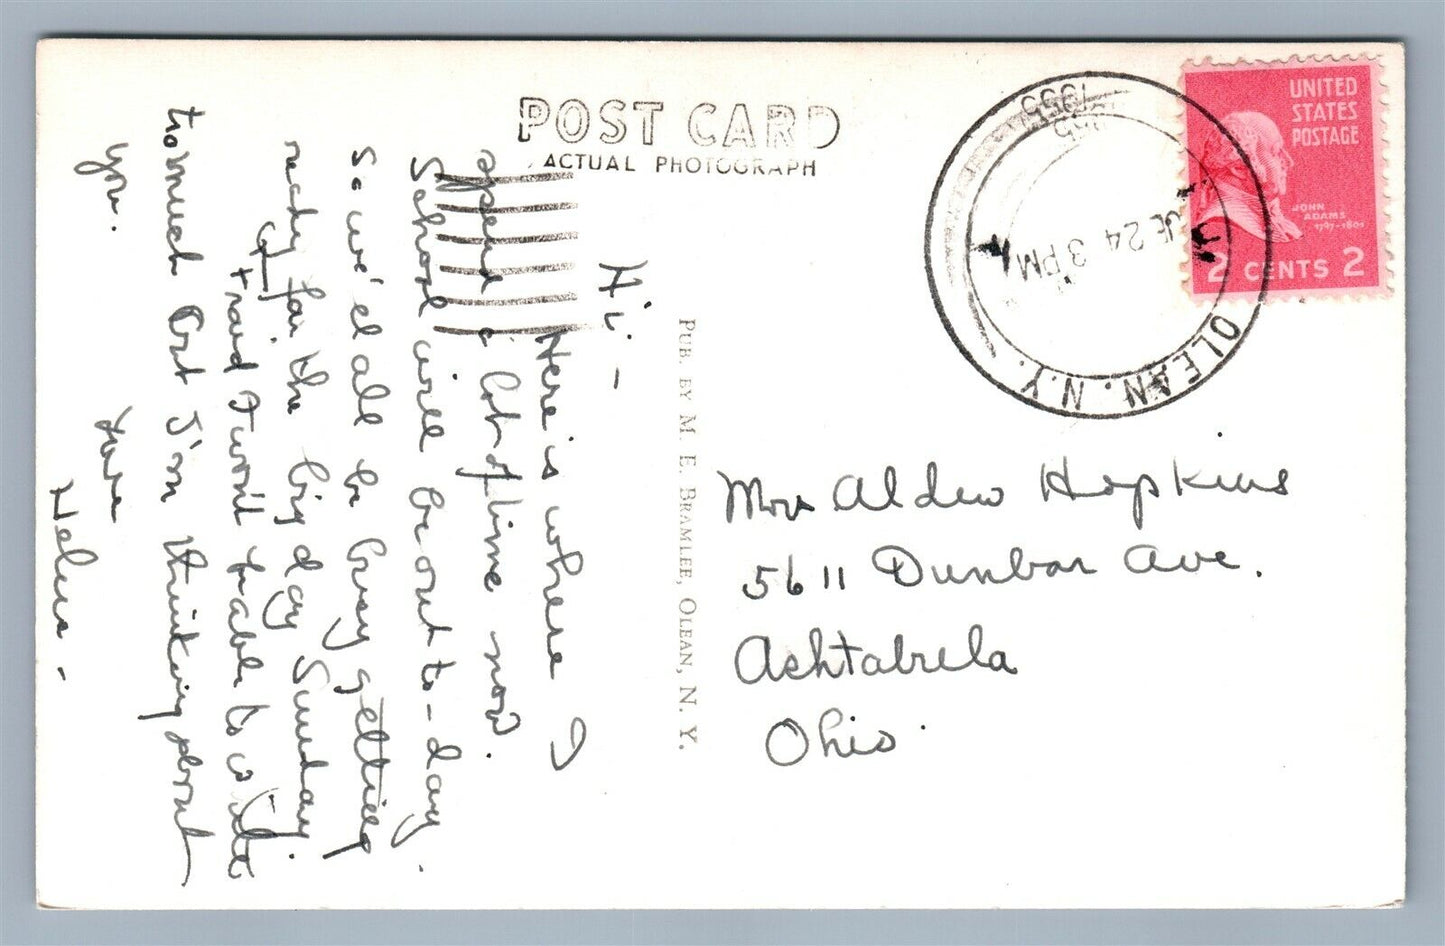 POST CARD
ACTUAL PHOTOGRAPH
Hi –
Here is where I
spend a lot of time now.
School will be out to-day.
So we'el all be busy getting
ready for the big day Sunday.
I'm afraid I won't be able to write
to much But I'm thinking about
you.
Love
Helen –
PUB. BY M. E. BRAMLEE, OLEAN, N. Y.
OLEAN, N.Y.
24 3 PM
1955
UNITED
STATES
POSTAGE
JOHN
ADAMS
1797-1801
2 CENTS 2
Mrs Alden Hopkins
5611 Dunbar Ave.
Ashtabula
Ohio.